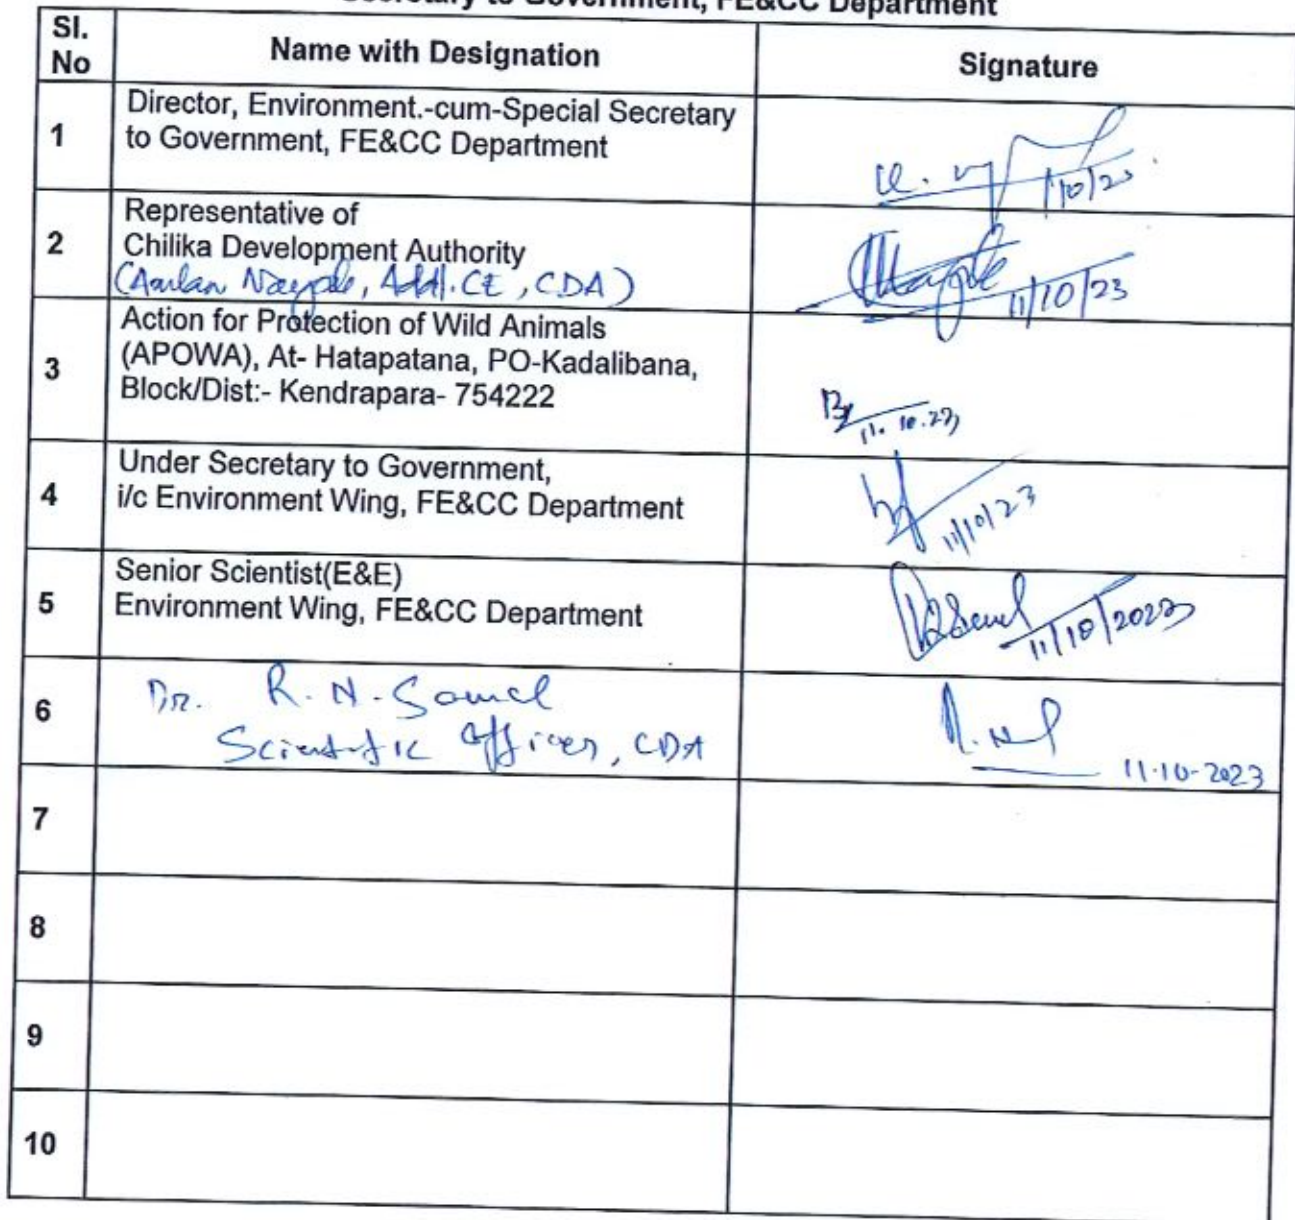 Secretary to Government, FE&CC Department
Sl. No
Name with Designation
Signature
1
Director, Environment.-cum-Special Secretary
to Government, FE&CC Department
2
Representative of
Chilika Development Authority
Addl. CE, CDA)
11/10/23
3
Action for Protection of Wild Animals
(APOWA), At- Hatapatana, PO-Kadalibana,
Block/Dist:- Kendrapara- 754222
11.10.23
4
Under Secretary to Government,
i/c Environment Wing, FE&CC Department
11/10/23
5
Senior Scientist(E&E)
Environment Wing, FE&CC Department
11/10/2023
6
Dr. R. N. Samal
Scientific Officer, CDA
11-10-2023
7
8
9
10